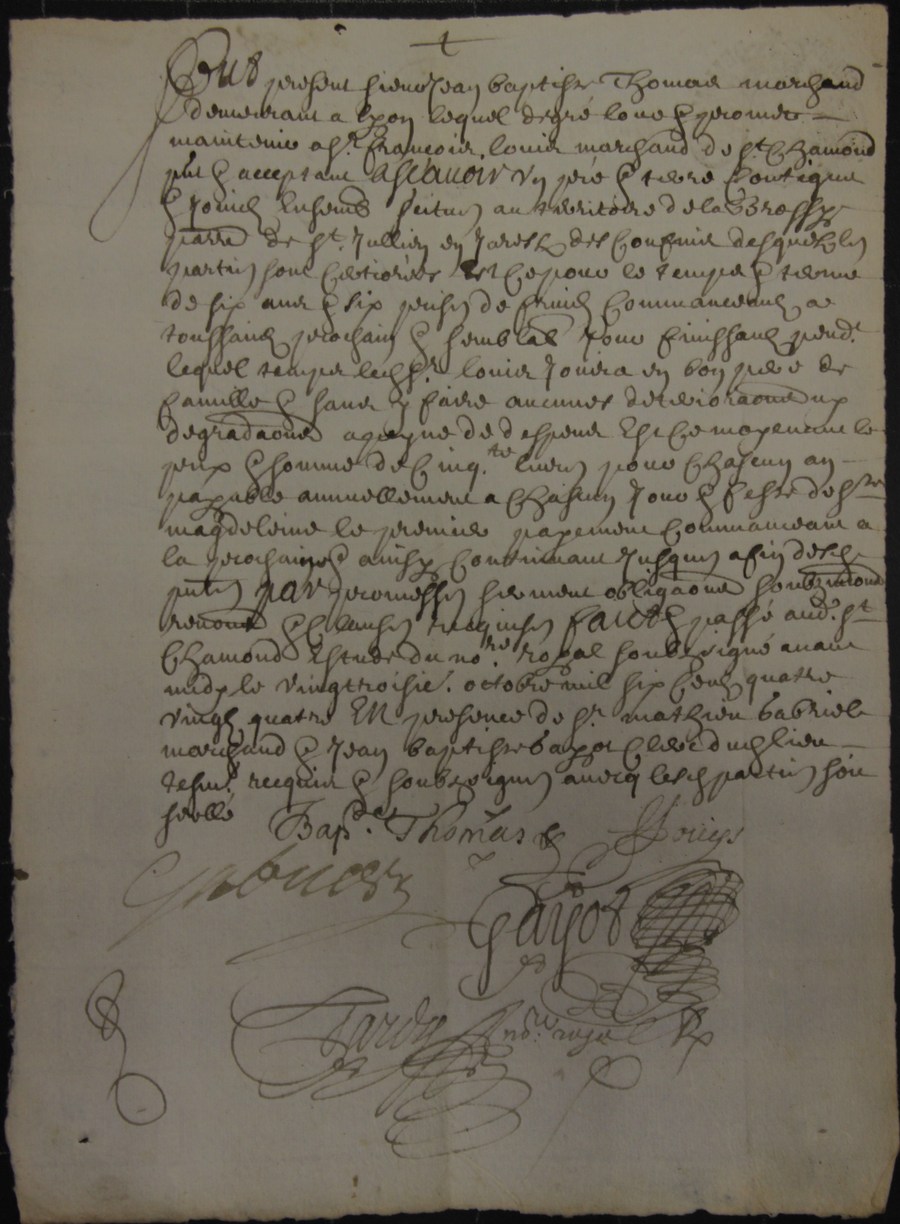 Fut present sieur Jean baptiste Thomas marchand
demeurant a Lyon lequel de gré loue & promet
maintenir a sr. francois louis marchand de st. Chamond
pnt & acceptant ascavoir un pré & terre contigue
& joincts ensemb scitués au territoire de la
parre de st. Jullien en Jarestz des confins desquelz les
parties sont certiorées Et ce pour le temps & terme
de six ans & six prises de fruicts commanceant a
toussaincts prochain & semblab jour finissant pendt.
lequel temps ledt sr. louis jouira en bon pere de
famille & sans y faire aucunes deterioraons ny
degradaons a peyne de despens Et ce moyenant le
prix & somme de Cinq.te livres pour chascun an
payable annuellement a chascun jour & feste de ste
magdeleine le premier payement commanceant a
la prochaine & ainsy continuant jusques a fin desdts
par promesses serment obligaons soubzmons
renons & clauses requises faict & passé aud. st
Chamond Estude du no.re royal soubzsigné avant
midy le vingtroisie. octobre mil six cents quatre
vingts quatre En presence de sr. mathieu gabriel
marchand & Jean baptiste gayot clerc dudt lieu
tesm. requis & soubzsignes avecq lesdt parties son
seellé
Bap.te Thomas
Louys
gayot
no.re royal